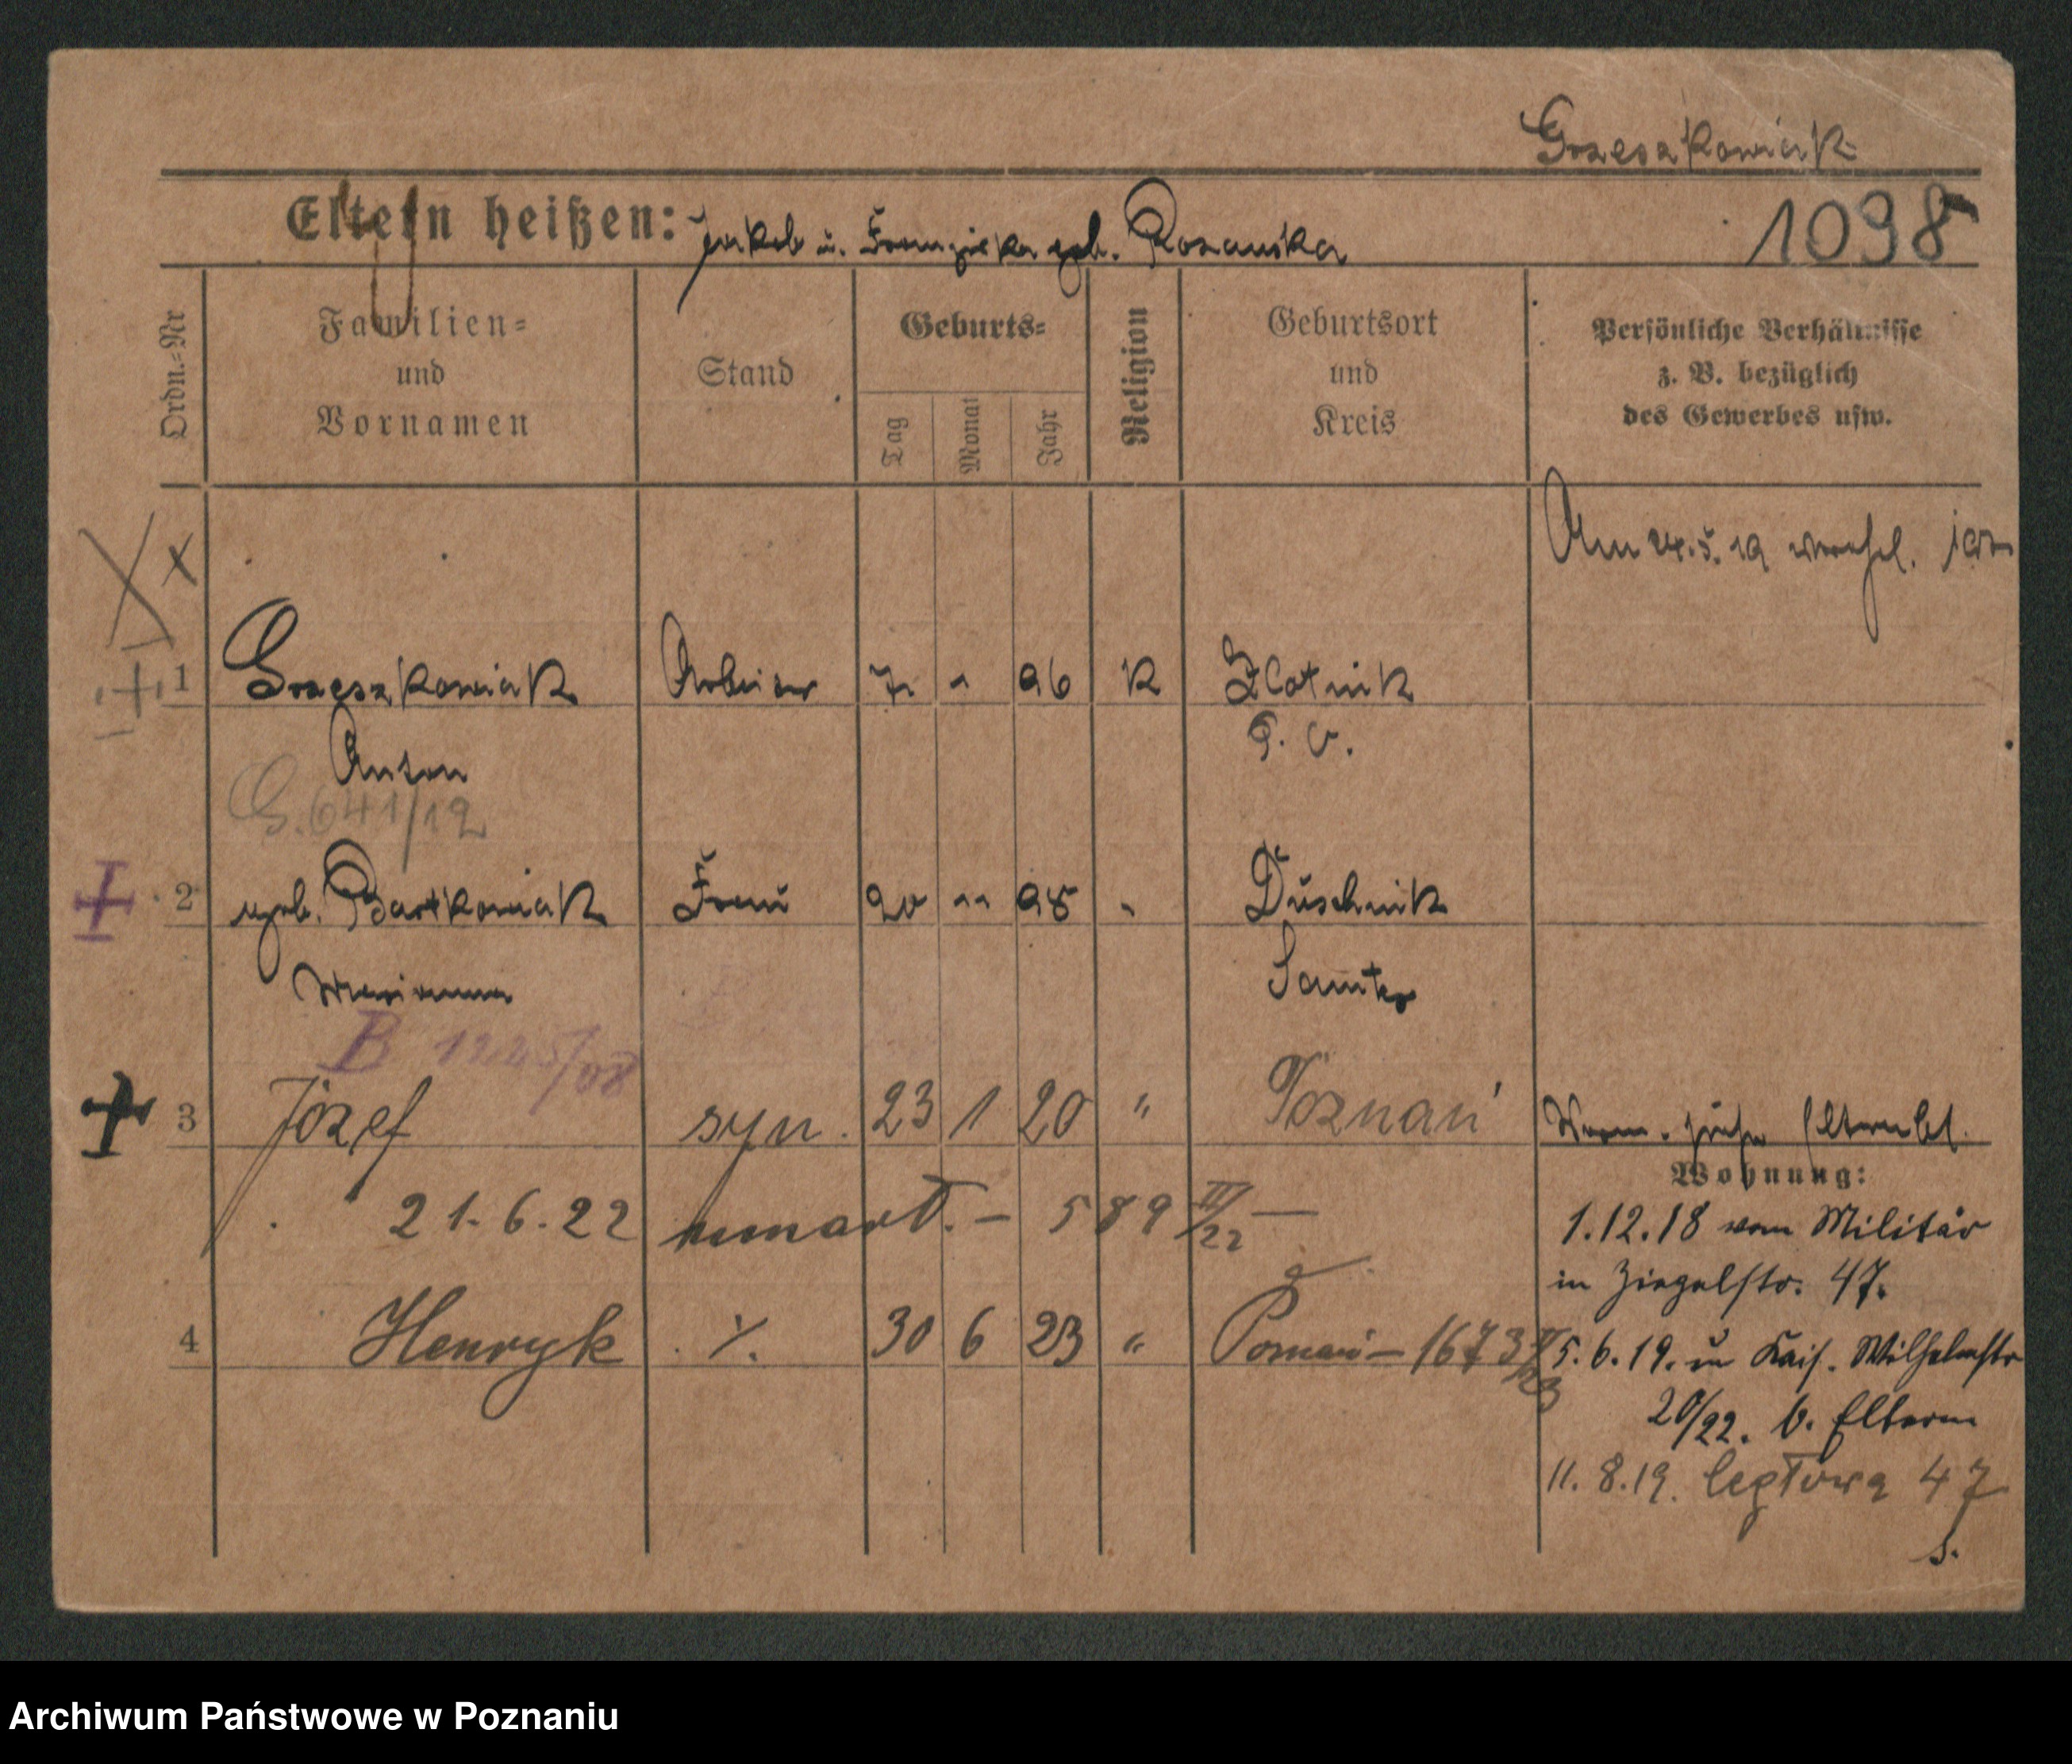 Grzeszkowiak
Eltern heißen: Jakob u. Franziska geb. Rozanska
1098
Ordn.-Nr
Familien-
und
Vornamen
Stand
Geburts-
Tag
Monat
Jahr
Religion
Geburtsort
und
Kreis
Persönliche Verhältnisse
z. B. bezüglich
des Gewerbes usw.
Am 24.5.19
1 Grzeszkowiak Arbeiter 7 96 K Zlotnik
Anton P. O.
G. 641/12
2 geb. Bartkowiak Frau 20 " 98 " Duschnik
Marianna Samter
B 1225/08
3 Józef syn. 23 1 20 " Poznań
Wohnung:
21.6.22 umarł. – 589 II/22 –
1.12.18 vom Militär
in Ziegelstr. 47.
4 Henryk ·/. 30 6 23 " Poznań – 1673
5.6.19. in Kais. Wilhelmstr
20/22. b. Eltern
11.8.19. Cegłowa 47